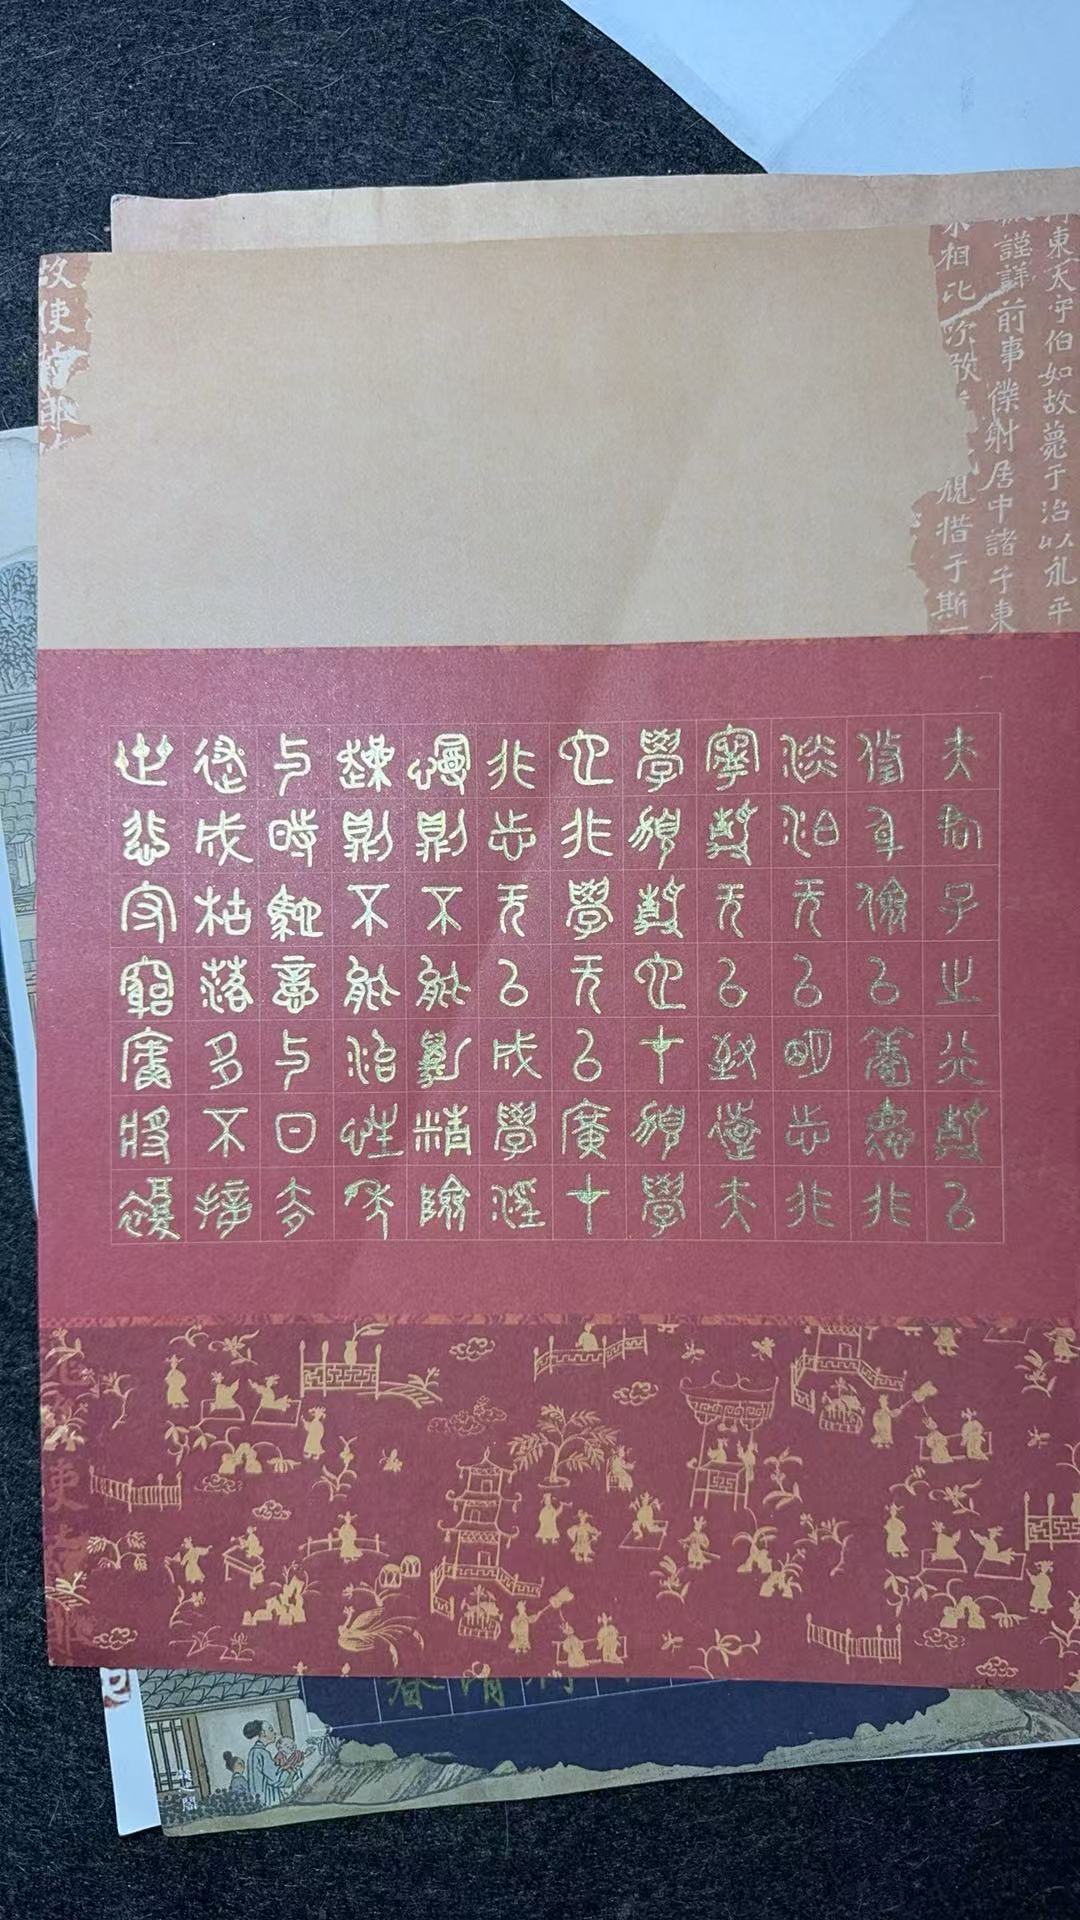 東太守伯如故薨于治以永平
謹詳前事僕射居中諸子東
相比次敢
惜于斯
故使持
夫君子之行靜以
修身儉以養德非
淡泊无以明志非
寧靜无以致遠夫
學須靜也才須學
也非學无以廣才
非志无以成學淫
慢則不能勵精險
躁則不能治性年
与時馳意与日去
遂成枯落多不接
世悲守窮廬將復